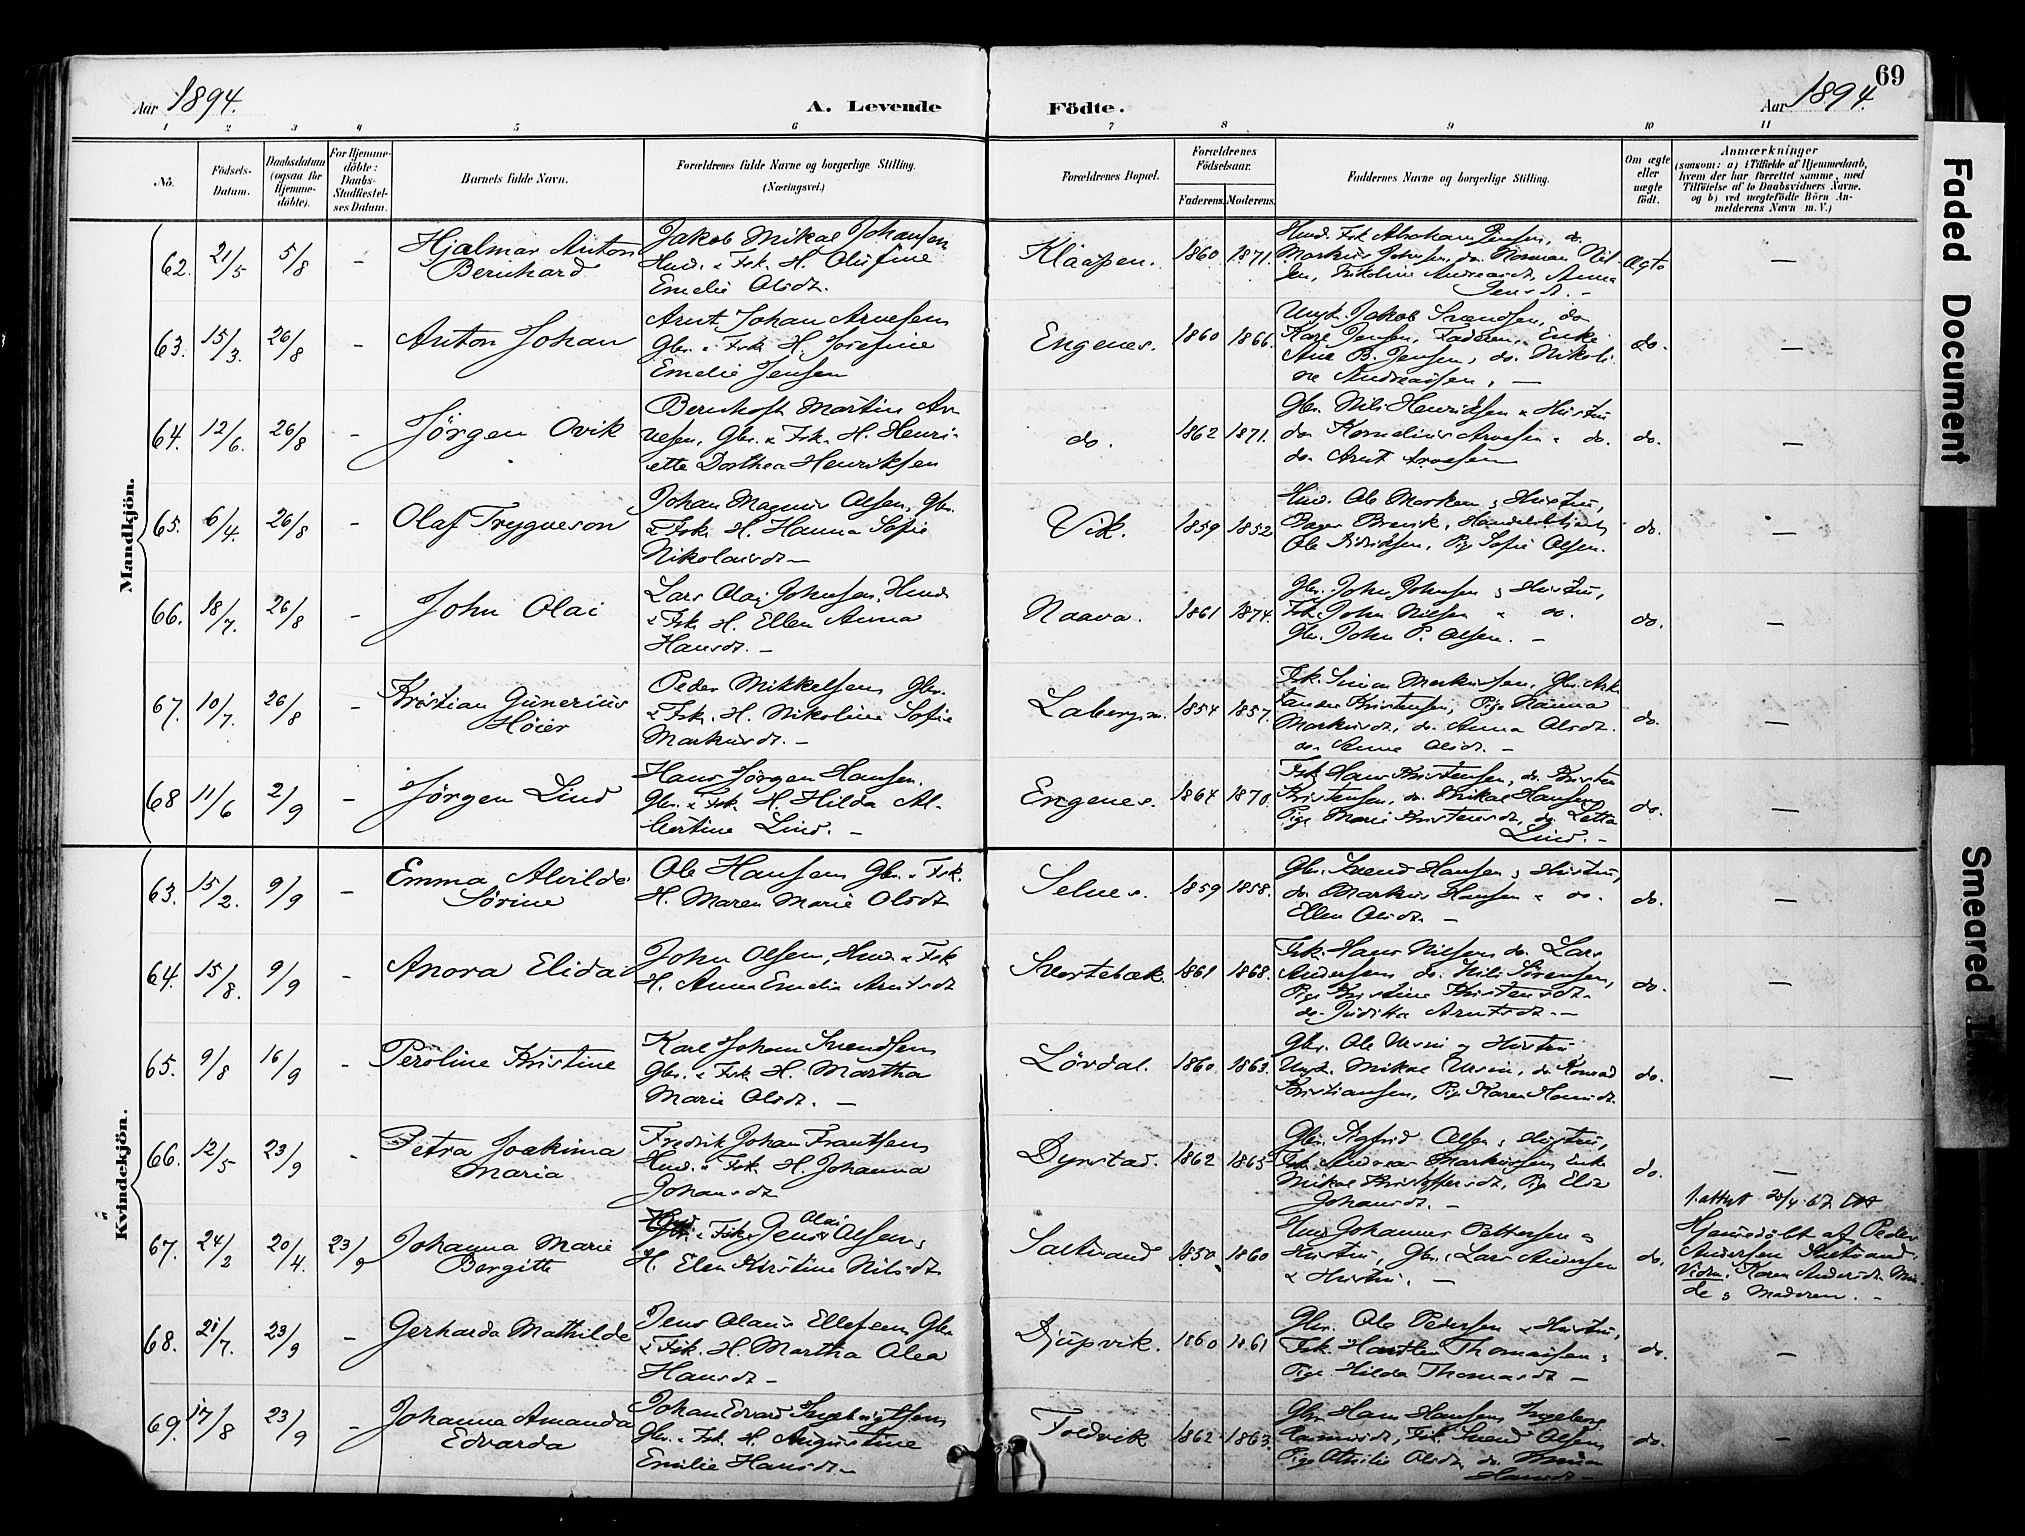 Aar 1894.
A. Levende Födte.
Aar 1894.
69
1 2 3 4 5 6 7 8 9 10 11
No.
Födsels-
Datum.
Daabsdatum
(ogsaa for
Hjemme-
döbte).
For Hjemme-
döbte:
Daabs-
Stadfæstel-
ses Datum.
Barnets fulde Navn.
Forældrenes fulde Navne og borgerlige Stilling.
(Næringsvei.)
Forældrenes Bopæl.
Forældrenes
Födselsaar.
Faderens. Moderens.
Faddernes Navne og borgerlige Stilling.
Om ægte
eller
uægte
födt.
Anmærkninger
(saasom: a) i Tilfælde af Hjemmedaab,
hvem der har forrettet samme, med
Tilföielse af to Daabsvidners Navne.
og b) ved uægtefödte Börn An-
melderens Navn m. V.)
Mandkjön.
62. 21/5 5/8 -
Hjalmar Anton
Bernhard
Jakob Mikal Johansen
Hmd. & Fsk. H. Olufine
Emelie Olsdt.
Klaapen. 1860 1871.
Hmd. Fsk. Abraham Jensen, do.
Markus Johnsen, do. Norman Nil-
sen, Nikoline Andreasdt, Anna
Jensdt. -
ægte —
63. 15/3. 26/8 -
Anton Johan
Arnt Johan Arvesen
Gbr. & Fsk. H. Josefine
Emelie Jensen
Engenes. 1860 1866.
Ungk. Jakob Svendsen, do
Karl Jensen, Faderen, Enke
Ane B. Jensen, do. Nikoli-
ne Andreassen, —
do. —
64. 12/6. 26/8 -
Jörgen Ovik
Bernhoft Martin Ar-
vesen, Gbr. & Fsk. H. Henri-
ette Dorthea Henriksen
do. 1862 1871.
Gbr. Nils Henriksen & Hustru
do. Kornelius Arvesen & do.
do. Arnt Arvesen
do. —
65. 6/4. 26/8 -
Olaf Trygveson
Johan Magnus Olsen, Gbr.
& Fsk. H. Hanna Sofie
Nikolaisdt —
Vik. 1859 1852
Hmd. Ole Morken & Hustru,
Bager Brevik, Handelsbetjent
Ole Didriksen, Pige Sofie Olsen.
do. —
66. 18/7. 26/8 -
John Olai
Lars Olai Johnsen, Hmd.
& Fsk. H. Ellen Anna
Hansdt. —
Naava. 1861 1874.
Gbr. John Johnsen & Hustru,
Fsk. John Nilsen & do.
Gbr. John P. Olsen. -
do. —
67. 10/7. 26/8 -
Kristian Gunerius
Höier
Peder Mikkelsen Gbr.
& Fsk. H. Nikoline Sofie
Markusdt. —
Labergsn. 1854 1857.
Fsk. Simon Markussen, Gbr.
Kristensen, Pige Hanna
Markusdt, do. Anna Olsdt.
do. Anne Olsdt. -
do. —
68 11/6 2/9 -
Jörgen Lind
Hans Jörgen Hansen.
Gbr. & Fsk. H. Hilda Al-
bertine Lind. -
Engenes. 1864 1870.
Fsk. Hans Kristensen, do. Kristen
Kristensen, do. Mikal Hansen
Pige Marie Kristensdt, do. Letta
Lind. -
do. —
Kvindekjön.
63. 15/2. 9/9 -
Emma Alvilde
Sörine
Ole Hansen Gbr. & Fsk.
H. Maren Marie Olsdt
Selnes. 1859 1858.
Gbr. Svend Hansen & Hustru,
do. Markus Hansen & do.
Ellen Olsdt. —
do. —
64. 15/8. 9/9 -
Anora Elida
John Olsen, Hmd. & Fsk
H. Anna Emelie Arntsdt
Svertebæk. 1861 1868.
Fsk. Hans Nilsen do. Lars
Andersen do. Nils Sörensen,
Pige Kristine Kristensdt.
do. Judikka Arntsdt. —
do. —
65. 9/8 16/9 -
Peroline Kristine
Karl Johan Svendsen
Gbr. & Fsk. H. Martha
Marie Olsdt. —
Lövdal. 1860. 1863.
Gbr. Ole Ursin og Hustru
Ungk. Mikal Ursin, do. Konrad
Kristiansen, Pige Karen Hansdt.
do. —
66. 12/5 23/9 -
Petra Joakima
Maria
Fredrik Johan Frantsen
Hmd. & Fsk. H. Johanna
Johansdt
Dyrstad. 1862 1863
Gbr. Sigfrid Olsen & Hustru,
Fsk. Andreas Markussen, Enke
Mikal Kristoffersdt, Pige Elis
Johansdt. —
do. —
67. 24/2 20/4. 23/9
Johanna Marie
Bergitte
Hmd. & Fsk. Jens Olai Olsen &
H. Elen Kirstine Nilsdt
Saltvand 1850 1860
Hmd. Johannes Pettersen &
Hustru, Gbr. Lars Andersen
& Hustru. —
do.
1. attest 20/4 67
Hjemmedöbt af Peder
Andersen Saltvand.
Vidn. Karen Andersdt.
& Moderen. -
68. 21/7. 23/9 -
Gerharda Mathilde
Jens Olaus Ellefsen Gbr
& Fsk. H. Martha Olea
Hansdt —
Djupvik. 1860 1861
Gbr. Ole Pedersen & Hustru,
Fsk. Thomassen &
Pige Hilda Thomasdt —
do. —
69. 17/8 23/9 -
Johanna Amanda
Edvarda
Johan Edvard Ingebrigtsen
Gbr. & Fsk. H. Augustine
Emilie Hansdt —
Foldvik 1862 1863.
Gbr. Hans Hansen, Ingeborg
Rasmusdt, Fsk. Svend Olsen
Pige Othilie Olsdt, do.
Hansdt —
do. —
Faded Document
Smeared